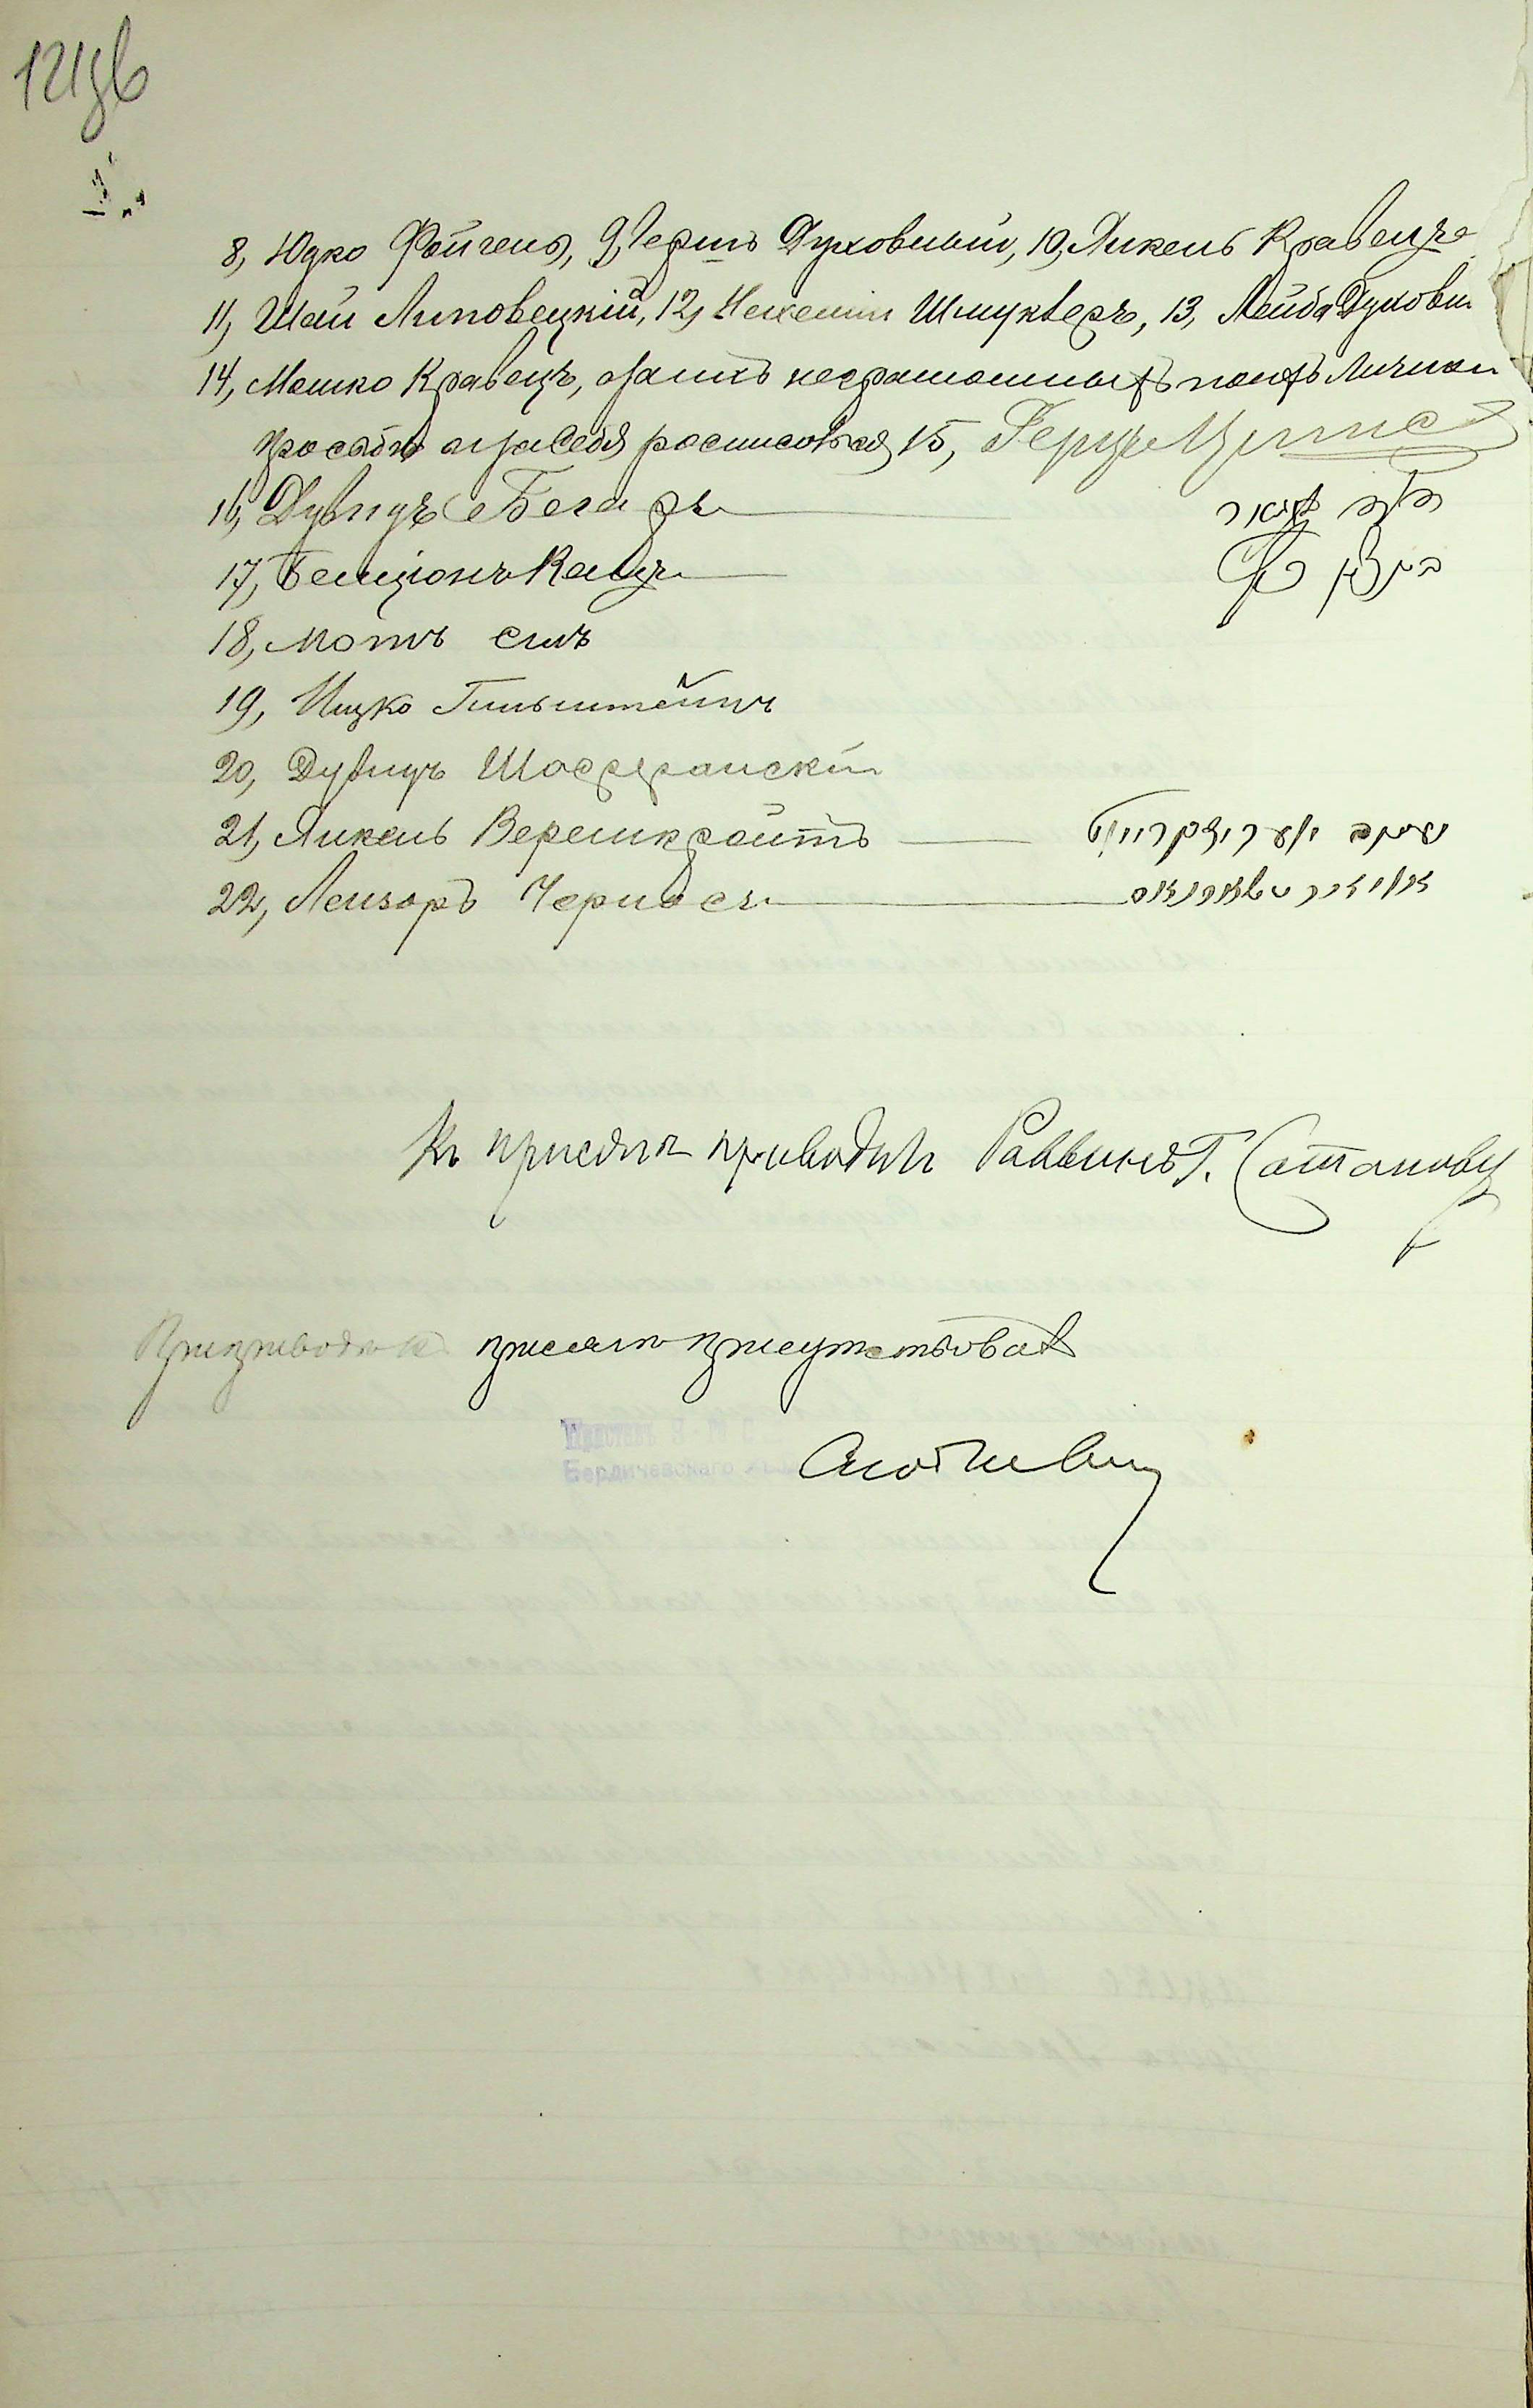 121 зв
8, Юдко Фейгень, 9, Герш Духовный, 10, Янкель Кравецъ
11, Шая Липовецкій, 12, Нехемія Шмуклеръ, 13, Лейба Духовн
14, Мошко Кравецъ, а за ихъ неграмотныхъ по ихъ личной
просьбѣ и за себя росписался 15, Герцъ
16, Дувидъ Бегаръ
17, Бенціонъ Кацъ בן ציון כץ
18, Мотъ
19, Ицко Гильштейнъ
20, Дувидъ Шаффранскій
21, Янкель Веренкройтъ יעקב
22, Лейзоръ Черносъ
Къ присягѣ приводилъ Раввинъ Г. Сатановъ
При приводѣ къ присягѣ присутствовалъ
Приставъ
Бердичевскаго